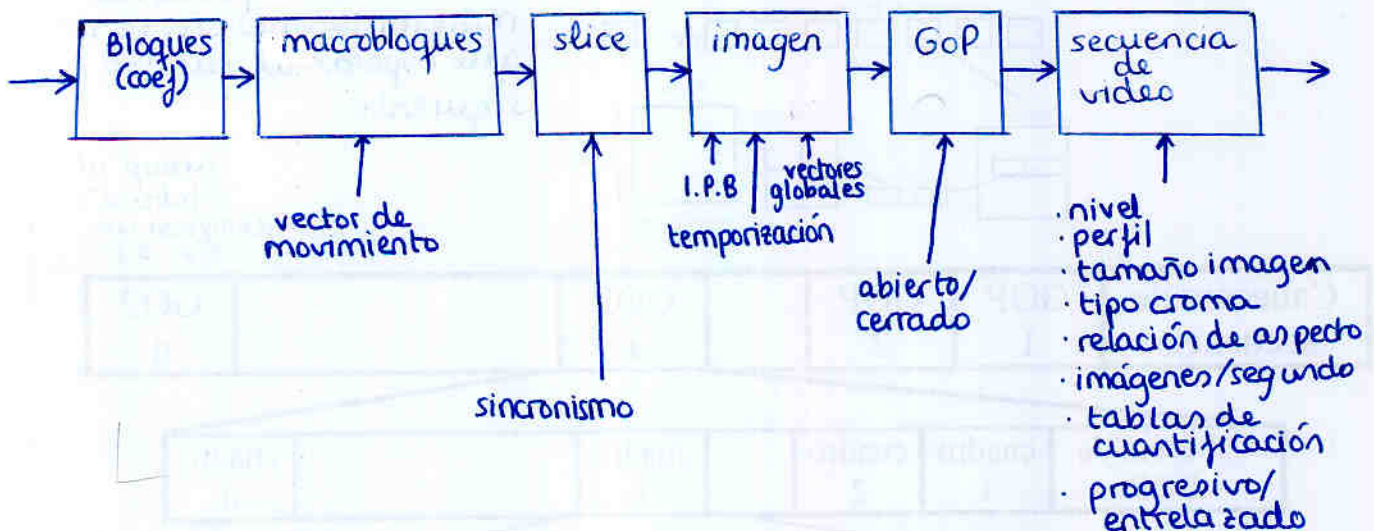 Bloques
(coef)
macrobloques
slice
imagen
GoP
secuencia
de
video
vector de
movimiento
sincronismo
I.P.B
temporización
vectores
globales
abierto/
cerrado
· nivel
· perfil
· tamaño imagen
· tipo croma
· relación de aspecto
· imágenes/segundo
· tablas de
cuantificación
· progresivo/
entrelazado